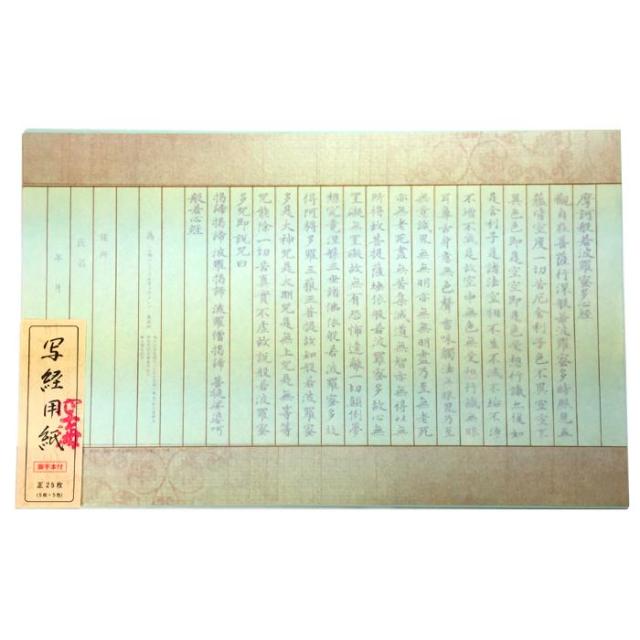 摩訶般若波羅蜜多心經
觀自在菩薩行深般若波羅蜜多時照見五
蘊皆空度一切苦厄舎利子色不異空空不
異色色即是空空即是色受想行識亦復如
是舎利子是諸法空相不生不滅不垢不浄
不増不減是故空中無色無受想行識無眼
耳鼻舌身意無色聲香味觸法無眼界乃至
無意識界無無明亦無無明盡乃至無老死
亦無老死盡無苦集滅道無智亦無得以無
所得故菩提薩埵依般若波羅蜜多故心無
罣礙無罣礙故無有恐怖遠離一切顛倒夢
想究竟涅槃三世諸佛依般若波羅蜜多故
得阿耨多羅三藐三菩提故知般若波羅蜜
多是大神呪是大明呪是無上呪是無等等
呪能除一切苦真實不虚故説般若波羅蜜
多呪即説呪曰
羯諦羯諦 波羅羯諦 波羅僧羯諦 菩提薩婆訶
般若心經
為
住所
氏名
年 月
写経用紙
御手本付
正25枚
(5枚×5色)